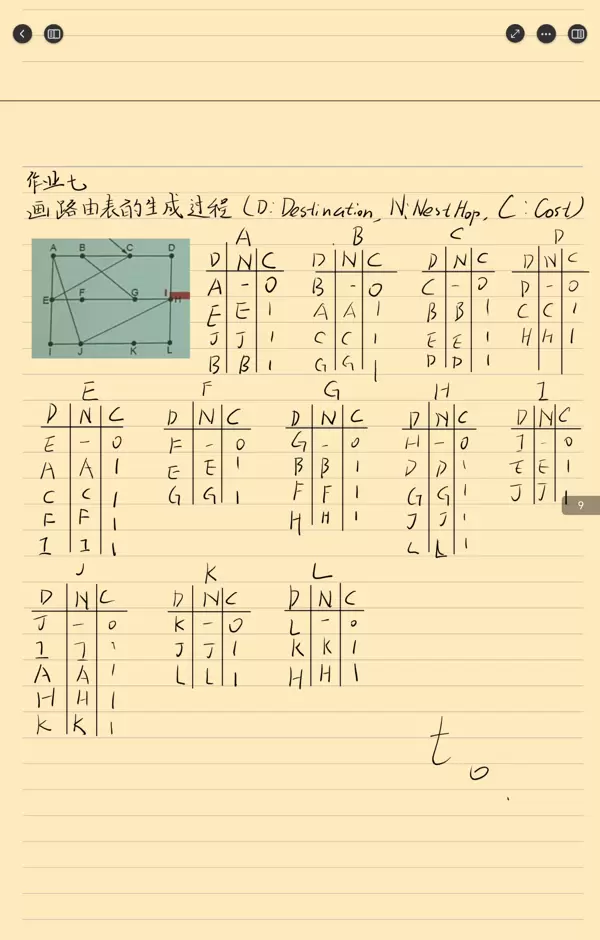 作业七
画路由表的生成过程 (D: Destination, N: Nest Hop, C: Cost)
A B C D
E F G I H
I J K L
A
D N C
A - 0
E E 1
J J 1
B B 1
B
D N C
B - 0
A A 1
C C 1
G G 1
C
D N C
C - 0
B B 1
E E 1
D D 1
D
D N C
D - 0
C C 1
H H 1
E
D N C
E - 0
A A 1
C C 1
F F 1
I I 1
F
D N C
F - 0
E E 1
G G 1
G
D N C
G - 0
B B 1
F F 1
H H 1
H
D N C
H - 0
D D 1
G G 1
J J 1
L L 1
I
D N C
I - 0
E E 1
J J 1
9
J
D N C
J - 0
I I 1
A A 1
H H 1
K K 1
K
D N C
K - 0
J J 1
L L 1
L
D N C
L - 0
K K 1
H H 1
t0